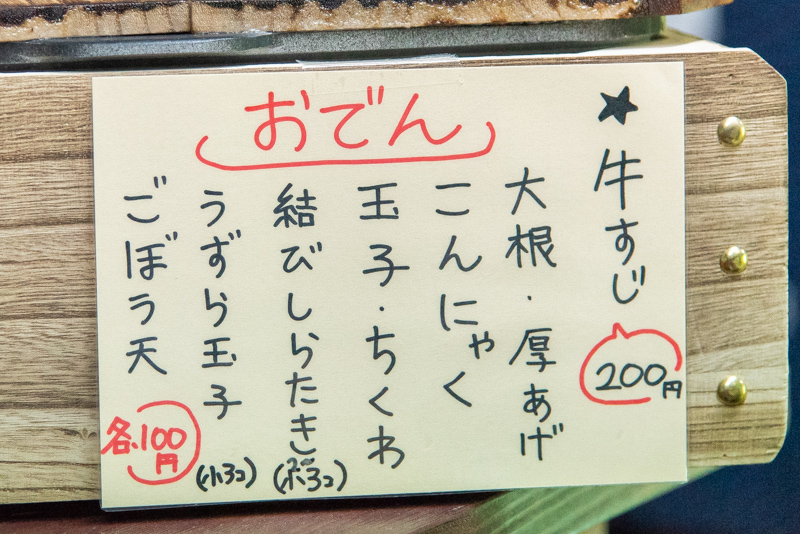 おでん
★牛すじ
200円
大根・厚あげ
こんにゃく
玉子・ちくわ
結びしらたき(小3コ)
うずら玉子(小3コ)
ごぼう天
各100円